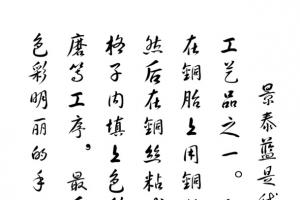 景泰藍是
工艺品之一。
在銅胎上用銅
然后在銅絲粘
格子内填上色
磨等工序，最
色彩明丽的手